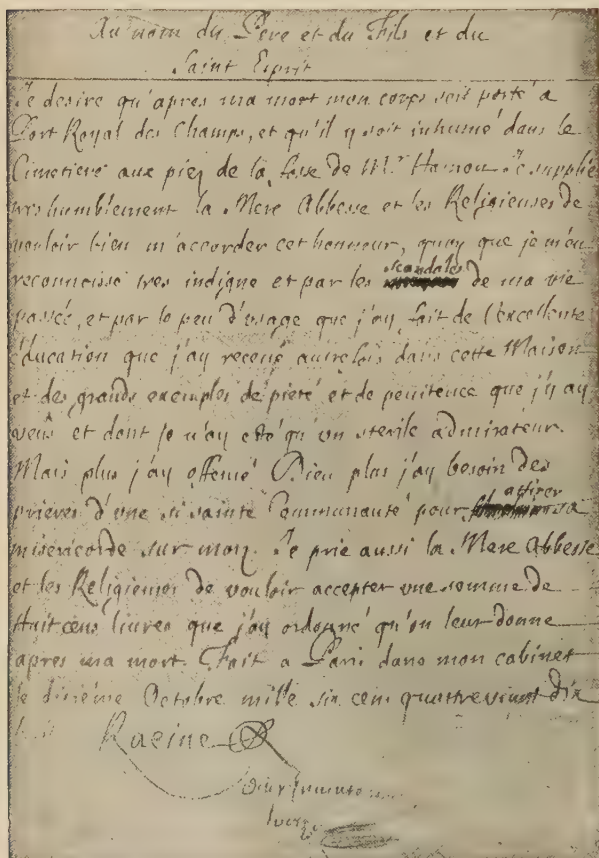 Au nom du Pere et du Fils et du
Saint Esprit
Je desire qu'apres ma mort mon corps soit porté a
Port Royal des Champs, et qu'il y soit inhumé dans le
Cimetiere aux piez de la fosse de Mr Hamon. Je supplie
tres humblement la Mere Abbesse et les Religieuses de
vouloir bien m'accorder cet honneur, quoy que je m'en
reconnoisse tres indigne et par les scandales de ma vie
passée, et par le peu d'usage que j'ay fait de l'excellente
éducation que j'ay receuë autrefois dans cette Maison
et des grands exemples de pieté et de penitence que j'y ay
veûs et dont je n'ay esté qu'un sterile admirateur.
Mais plus j'ay offensé Dieu plus j'ay besoin des
prieres d'une si sainte Communauté pour attirer sa
misericorde sur moy. Je prie aussi la Mere Abbesse
et les Religieuses de vouloir accepter une somme de
Huit cens livres que j'ay ordonné qu'on leur donne
apres ma mort. Fait a Paris dans mon cabinet
le dixiéme Octobre mille six cens quattrevint dix
Racine